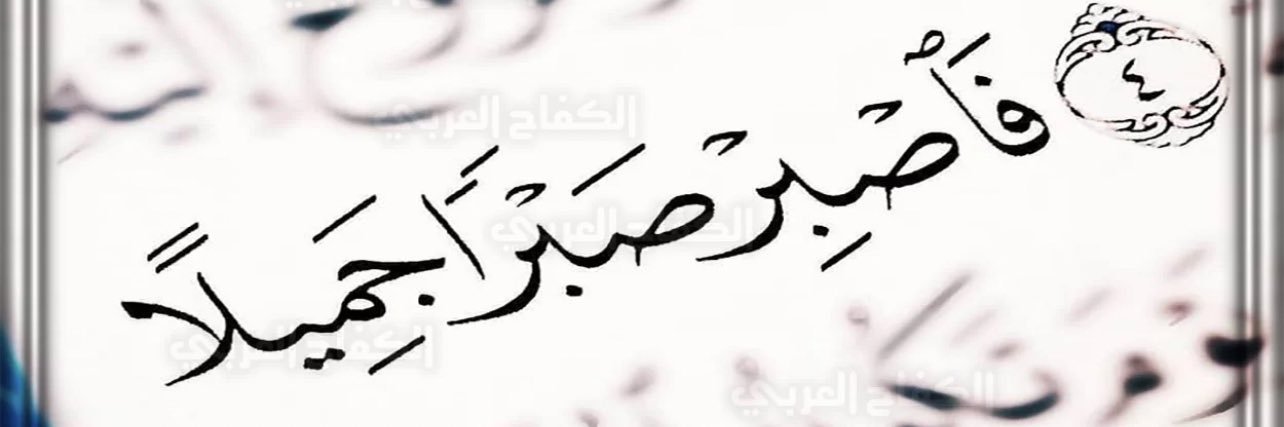 ٤ فَٱصْبِرْ صَبْرًا جَمِيلًا
الكفاح العربي
الكفاح العربي
الكفاح العربي
الكفاح العربي